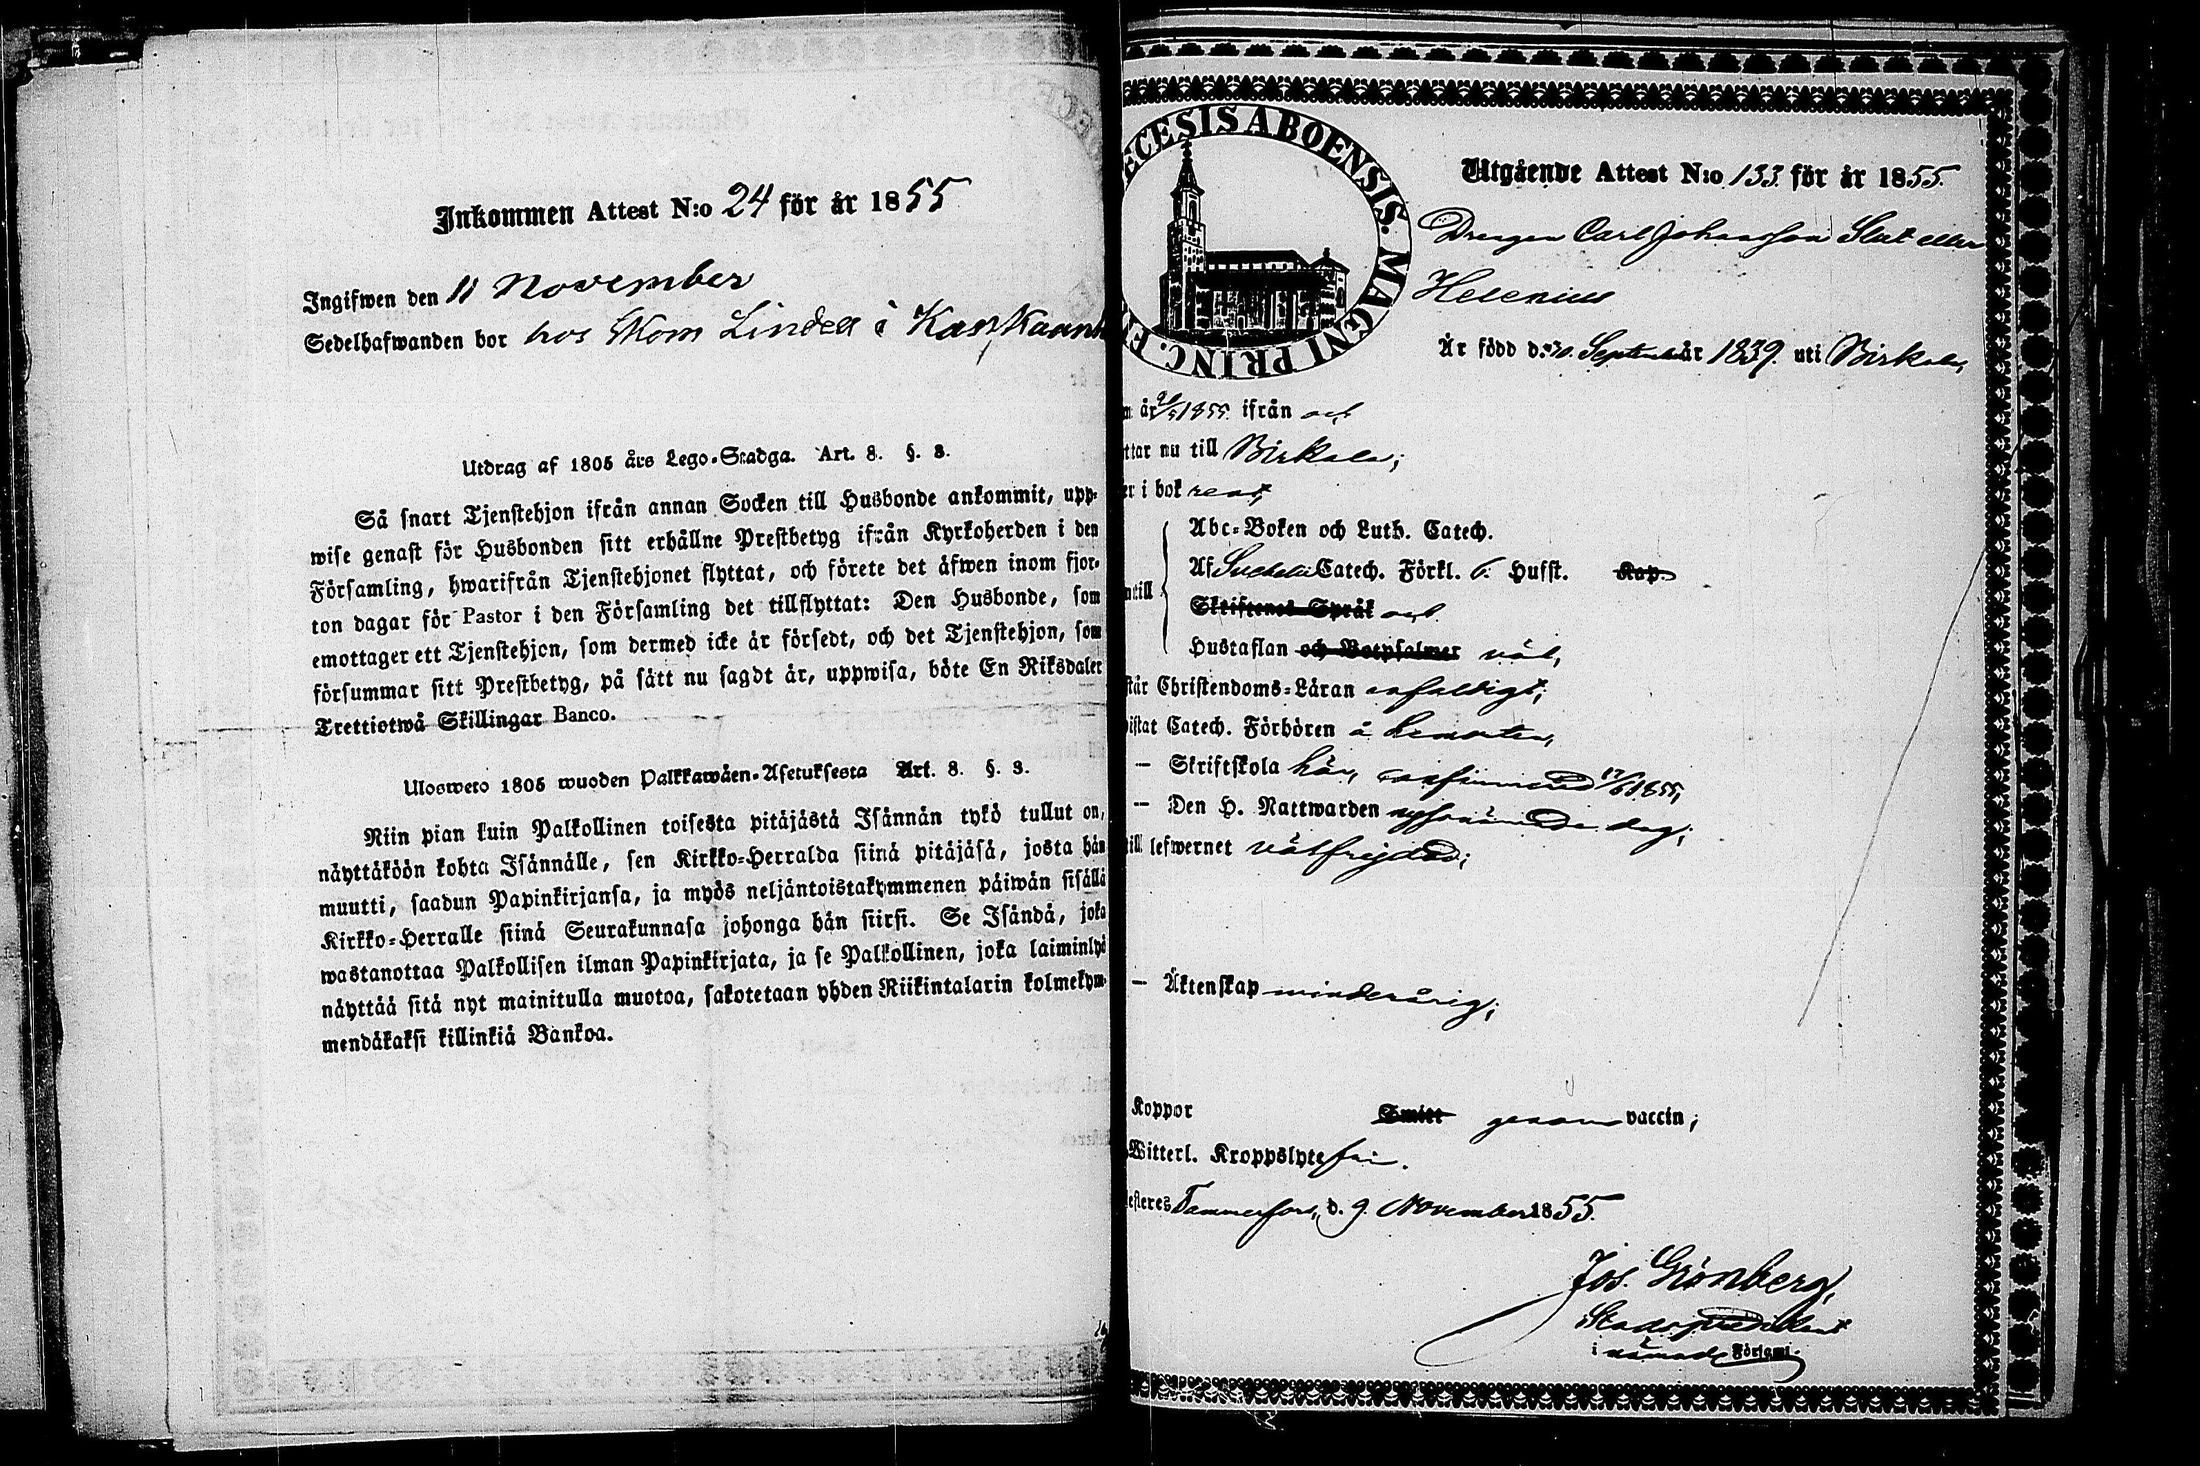 Inkommen Attest N:o 24 för år 1855
Ingifwen den 11 November
Sedelhafwanden bor hos Skom Lindell i
Utdrag af 1805 års Lego-Stadga. Art. 8. §. 3.
Så snart Tjenstehjon ifrån annan Socken till Husbonde ankommit, upp-
wise genast för Husbonden sitt erhållne Prestbetyg ifrån Kyrkoherden i den
Församling, hwarifrån Tjenstehjonet flyttat, och förete det äfwen inom fjor-
ton dagar för Pastor i den Församling det tillflyttat: Den Husbonde, som
emottager ett Tjenstehjon, som dermed icke är försedt, och det Tjenstehjon, som
försummar sitt Prestbetyg, på sätt nu sagdt är, uppwisa, böte En Riksdaler
Trettiotwå Skillingar Banco.
Ulosweto 1805 wuoden Palkkawäen-Asetuksesta Art. 8. §. 3.
Niin pian kuin Palkollinen toisesta pitäjästä Isännän tykö tullut on,
näyttäköön kohta Isännälle, sen Kirkko-Herralda siinä pitäjäsä, josta hän
muutti, saadun Papinkirjansa, ja myös neljäntoistakymmenen päiwän sisällä
Kirkko-Herralle siinä Seurakunnasa johonga hän siirsi. Se Isändä, joka
wastanottaa Palkollisen ilman Papinkirjata, ja se Palkollinen, joka laiminlyö
näyttää sitä nyt mainitulla muotoa, sakotetaan yhden Riikintalarin kolmekym-
mendäkaksi killinkiä Bankoa.
ECESIS ABOENSIS. MAGNI PRINC. F
Utgående Attest N:o 133. för år 1855.
Drengen Carl Johansson Slut eller
Helenius
Är född d. 30. September år 1839. uti Birkala,
år 1855. ifrån och
ttar nu till Birkala;
er i bok rent,
Abc-Boken och Luth. Catech.
Af Svebelii Catech. Förkl. 6. Husst. Kap.
ntill
Skriftenes Språk och
Hustaflan och Botpsalmer väl,
står Christendoms-Läran enfaldigt;
istat Catech. Förhören å hemorten,
— Skriftskola här, confirmerad 17/6 1855,
— Den H. Nattwarden nyssnämnde dag;
till lefwernet välfrejdad;
— Äktenskap minderårig;
Koppor Smitt genom vaccin;
Witterl. Kroppslyte fri.
esteres Tammerfors, d. 9. November 1855.
Jos. Grönberg,
Stadspredikant
i nämnde Församl.